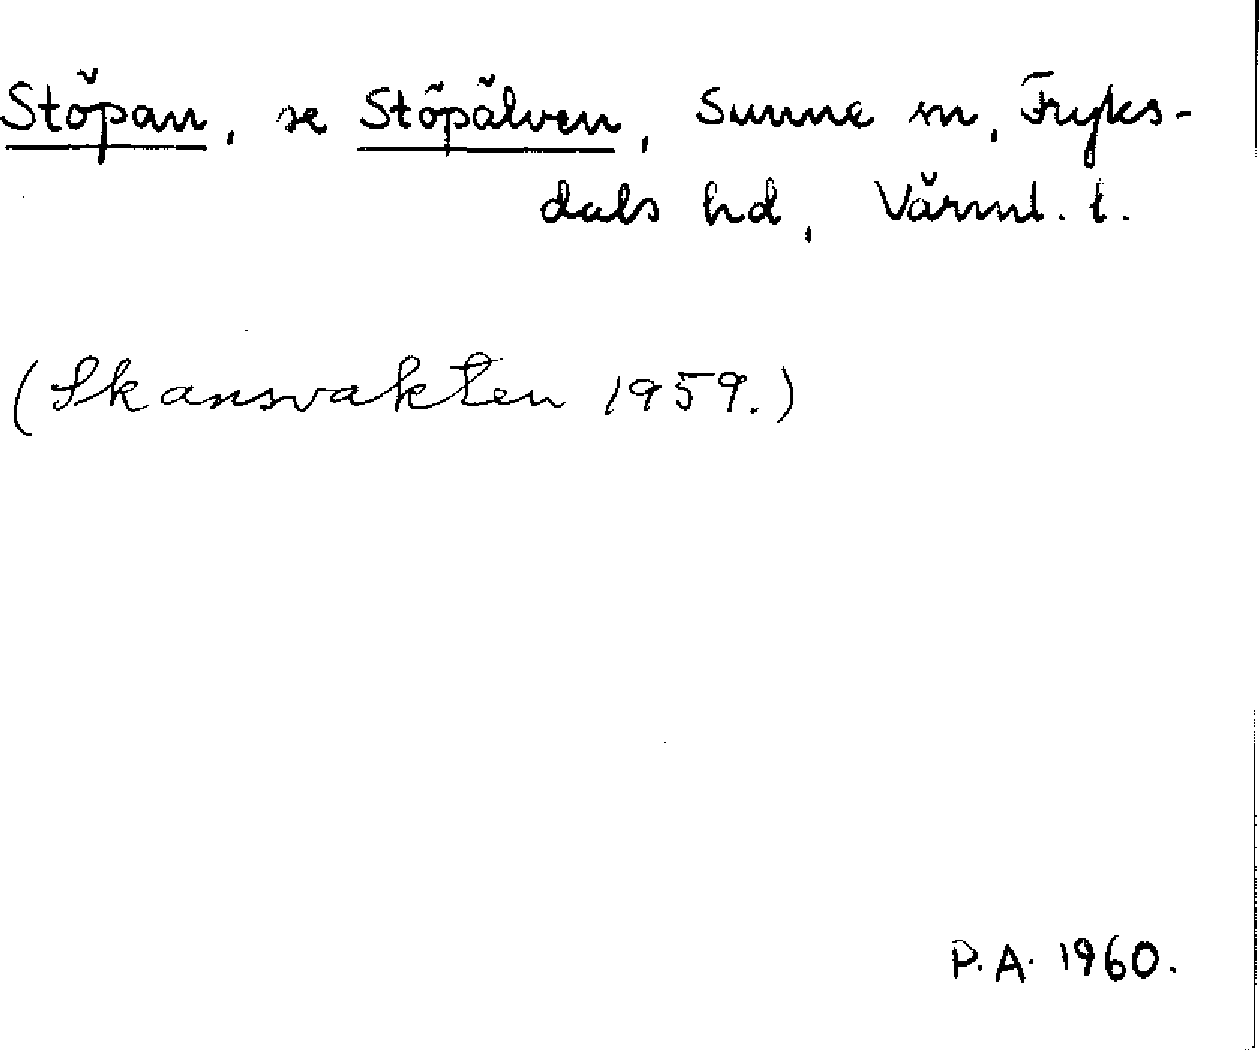 Stöpan, se Stöpälven, Sunne sn, Fryks-
dals hd, Värml. l.
(Skansvakten 1959.)
P.A. 1960.